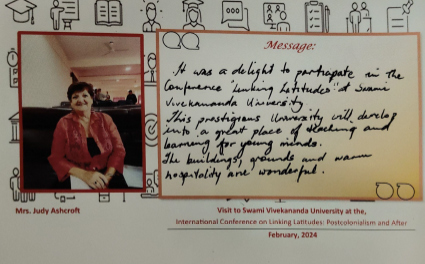 Message:
It was a delight to participate in the
Conference 'Linking Latitudes' at Swami
Vivekananda University
This prestigious University will develop
into a great place of teaching and
learning for young minds.
The buildings, grounds and warm
hospitality are wonderful.
Mrs. Judy Ashcroft
Visit to Swami Vivekananda University at the,
International Conference on Linking Latitudes: Postcolonialism and After
February, 2024